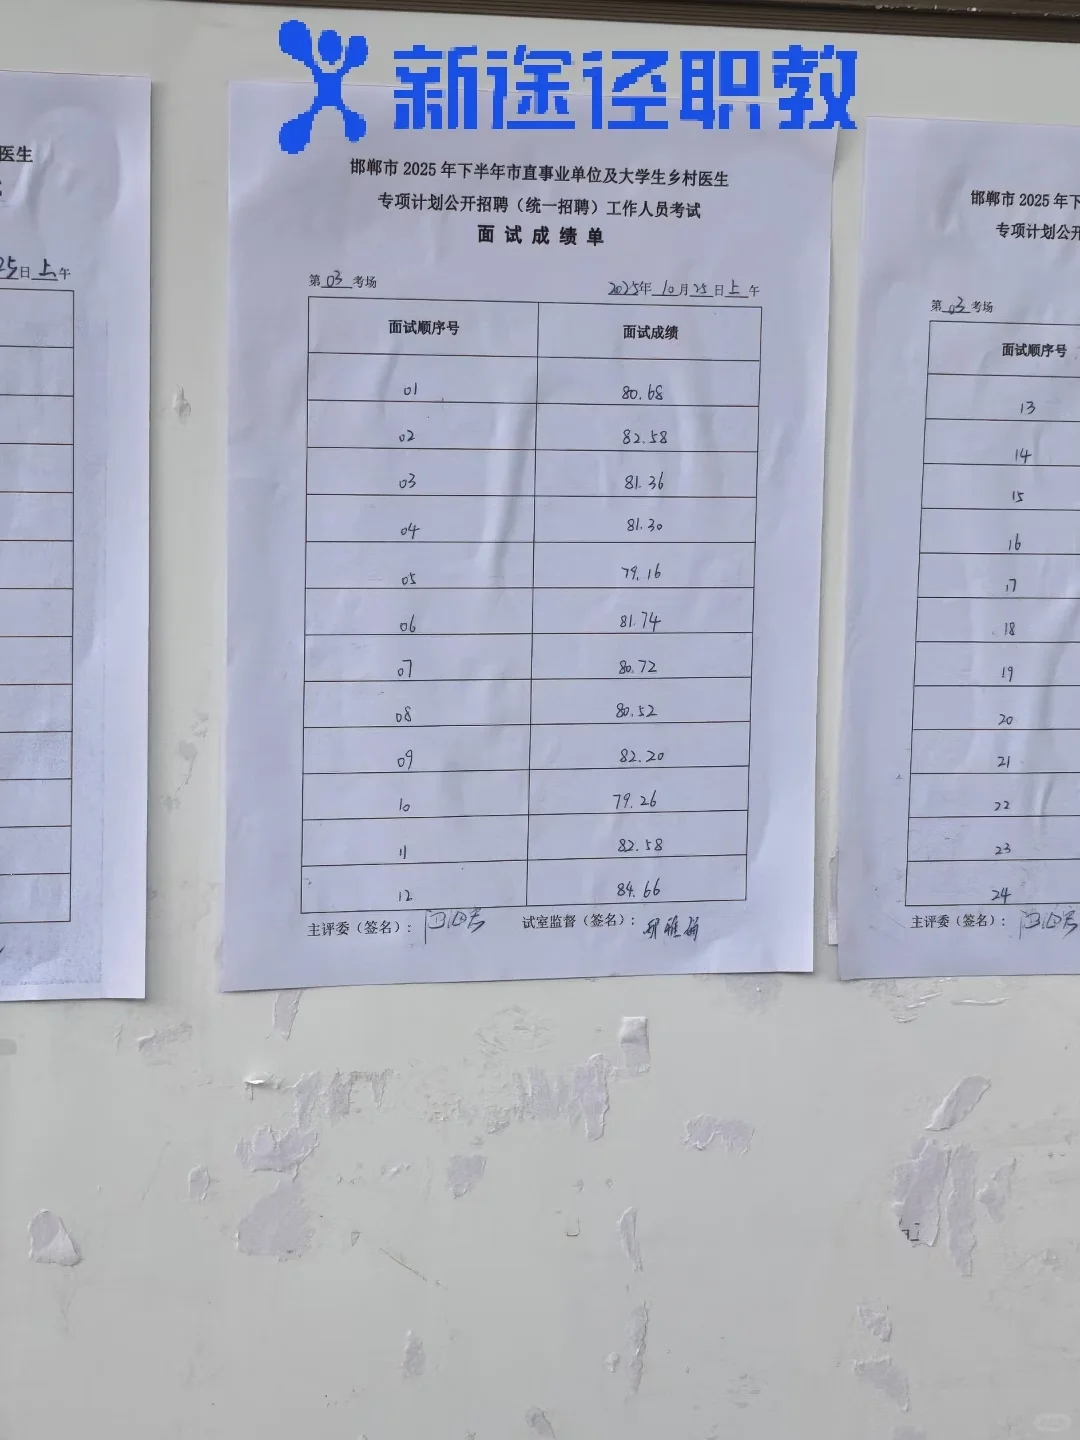 新途径职教
医生
25日上午
邯郸市 2025 年下半年市直事业单位及大学生乡村医生
专项计划公开招聘（统一招聘）工作人员考试
面试成绩单
第 03 考场
2025年 10 月 25 日 上 午
面试顺序号 面试成绩
01 80.68
02 82.58
03 81.36
04 81.30
05 79.16
06 81.74
07 80.72
08 80.52
09 82.20
10 79.26
11 82.58
12 84.66
主评委（签名）：
试室监督（签名）：
邯郸市 2025 年下
专项计划公开
第 03 考场
面试顺序号
13
14
15
16
17
18
19
20
21
22
23
24
主评委（签名）：